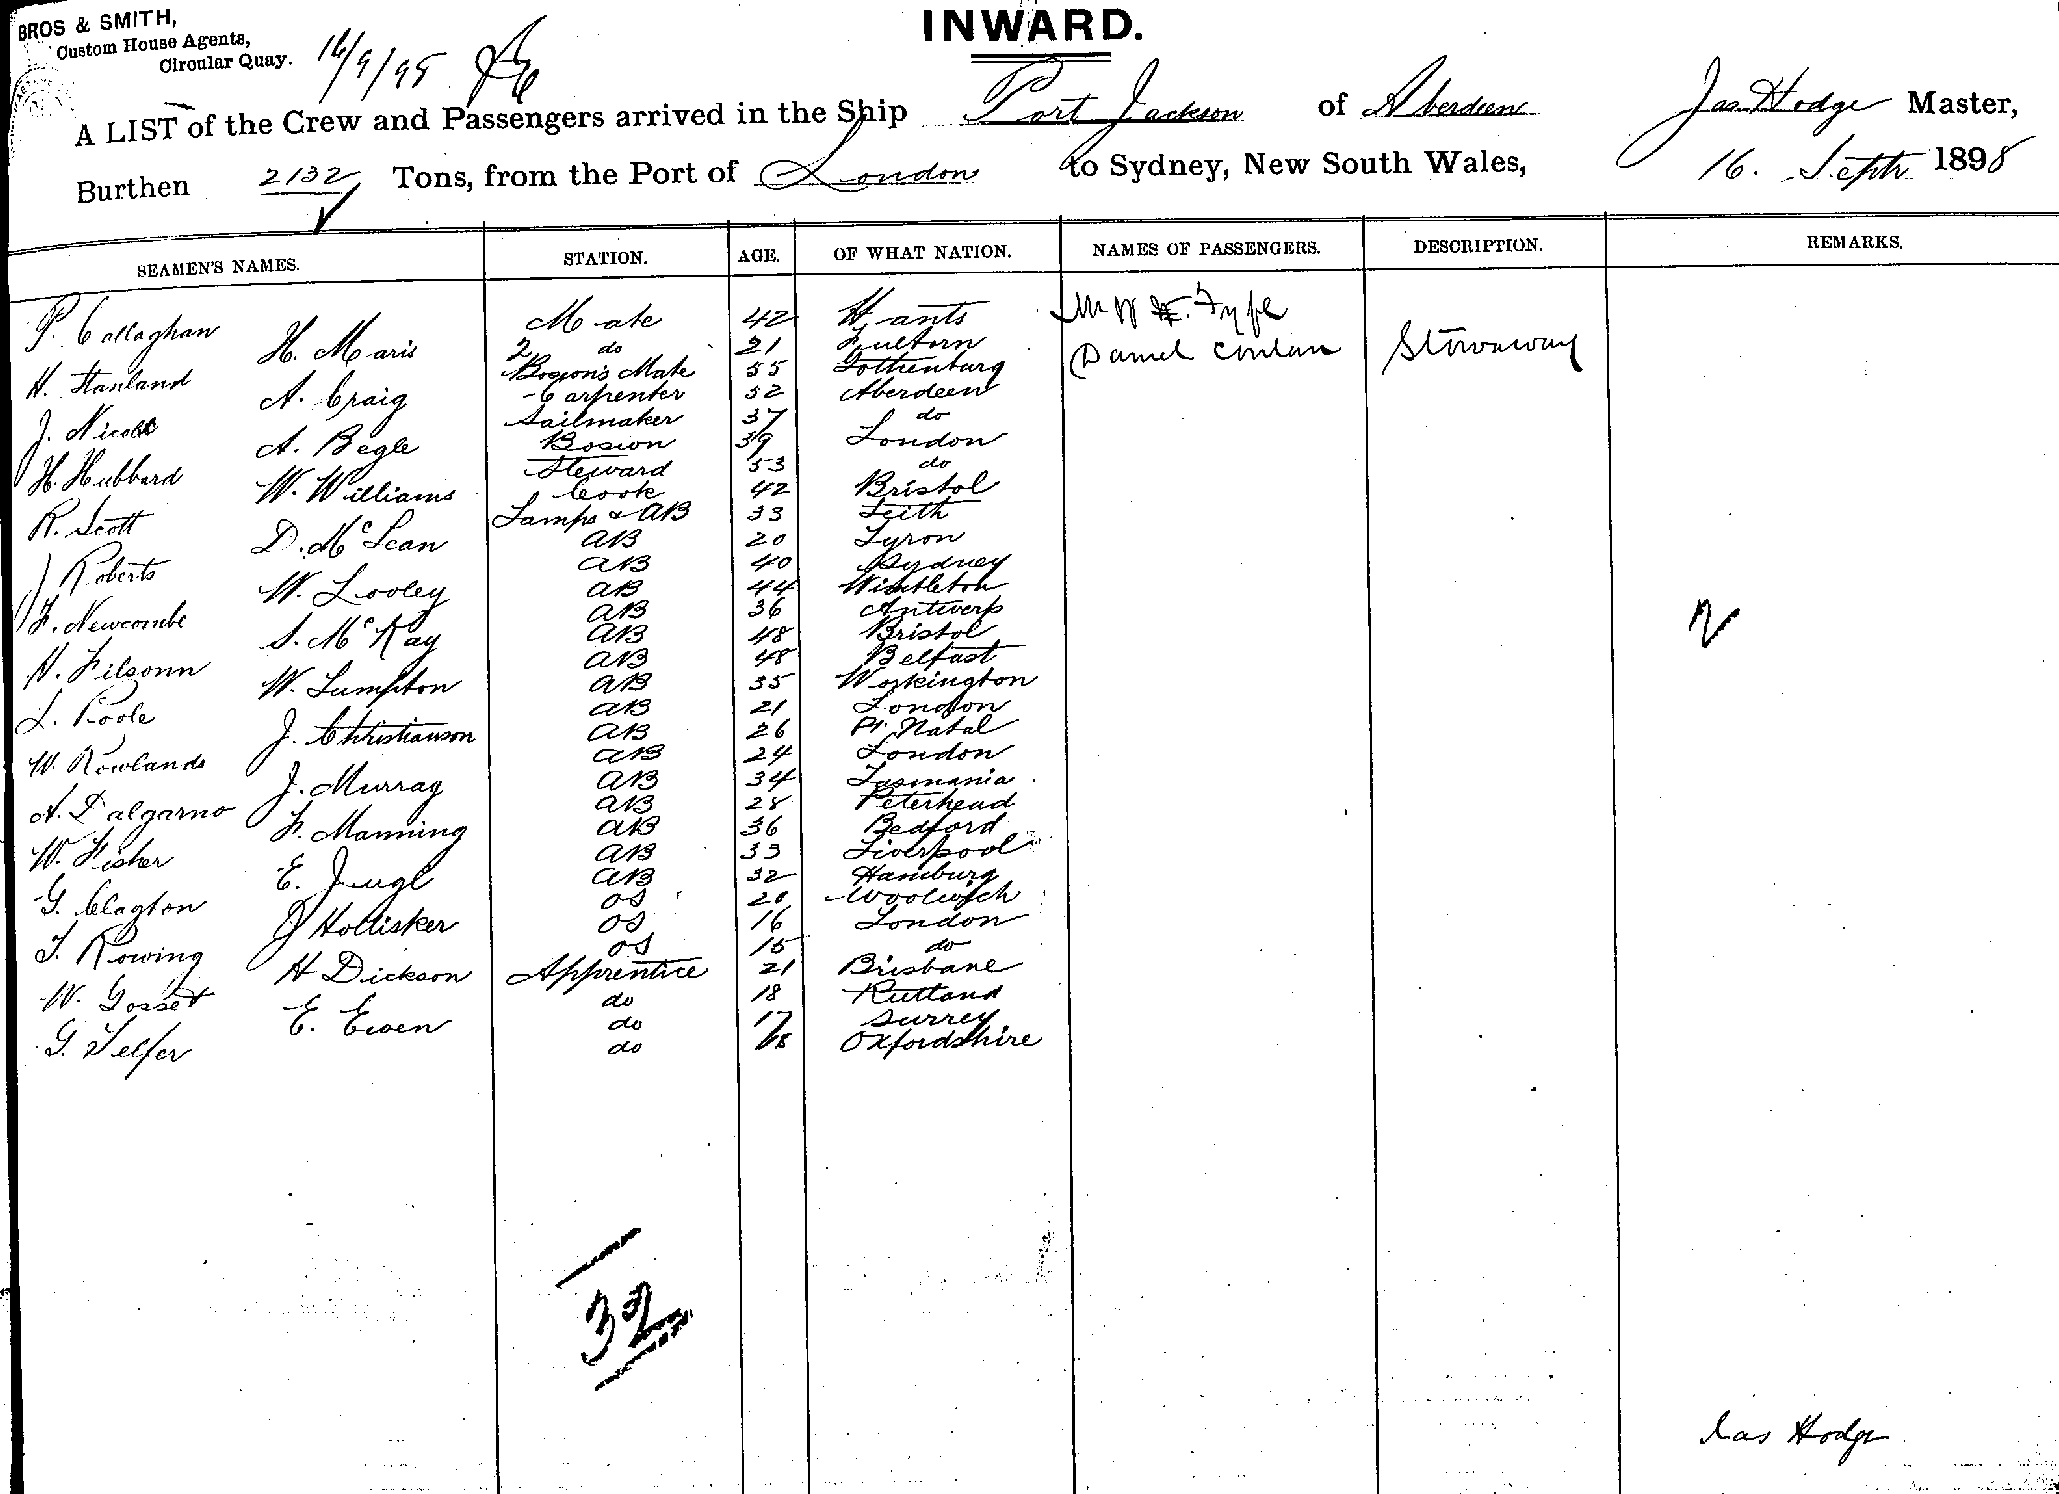 BROS & SMITH,
Custom House Agents,
Circular Quay.
16/9/95
INWARD.
A LIST of the Crew and Passengers arrived in the Ship Port Jackson of Aberdeen Jas Hodge Master,
Burthen 2132 Tons, from the Port of London to Sydney, New South Wales, 16. Septr 1898
SEAMEN'S NAMES. STATION. AGE. OF WHAT NATION. NAMES OF PASSENGERS. DESCRIPTION. REMARKS.
P. Callaghan Mate 42 Hants Fyfe
H. Maris 2 do 21 Daniel Conlan Stowaway
H. Stanland Boson's Mate 55 Gothenburg
A. Craig Carpenter 52 Aberdeen
J. Nicoll Sailmaker 37 do
A. Begle Boson 39 London
H. Hubbard Steward 53 do
W. Williams Cook 42 Bristol
R. Scott Lamps & AB 33 Leith
D. McLean AB 20 Tyron
J Roberts AB 40 Sydney
W. Looley AB 44
F. Newcombe AB 36 Antwerp
S. McKay AB 48 Bristol
N. Filsonn AB 48 Belfast
W. Lumpton AB 35 Workington
L. Poole AB 21 London
J. Christianson AB 26 Pt Natal
W. Rowlands AB 24 London
J. Murray AB 34 Tasmania
A. Dalgarno AB 28 Peterhead
F. Manning AB 36 Bedford
W. Fisher AB 33 Liverpool
E. Jugl AB 32 Hamburg
G. Clagton OS 20 Woolwich
J Hollisker OS 16 London
T. Rowing OS 15 do
H Dickson Apprentice 21 Brisbane
W. Gosset do 18 Rutland
E. Ewen do 17 Surrey
G. Telfer do 18 Oxfordshire
32
Jas Hodge